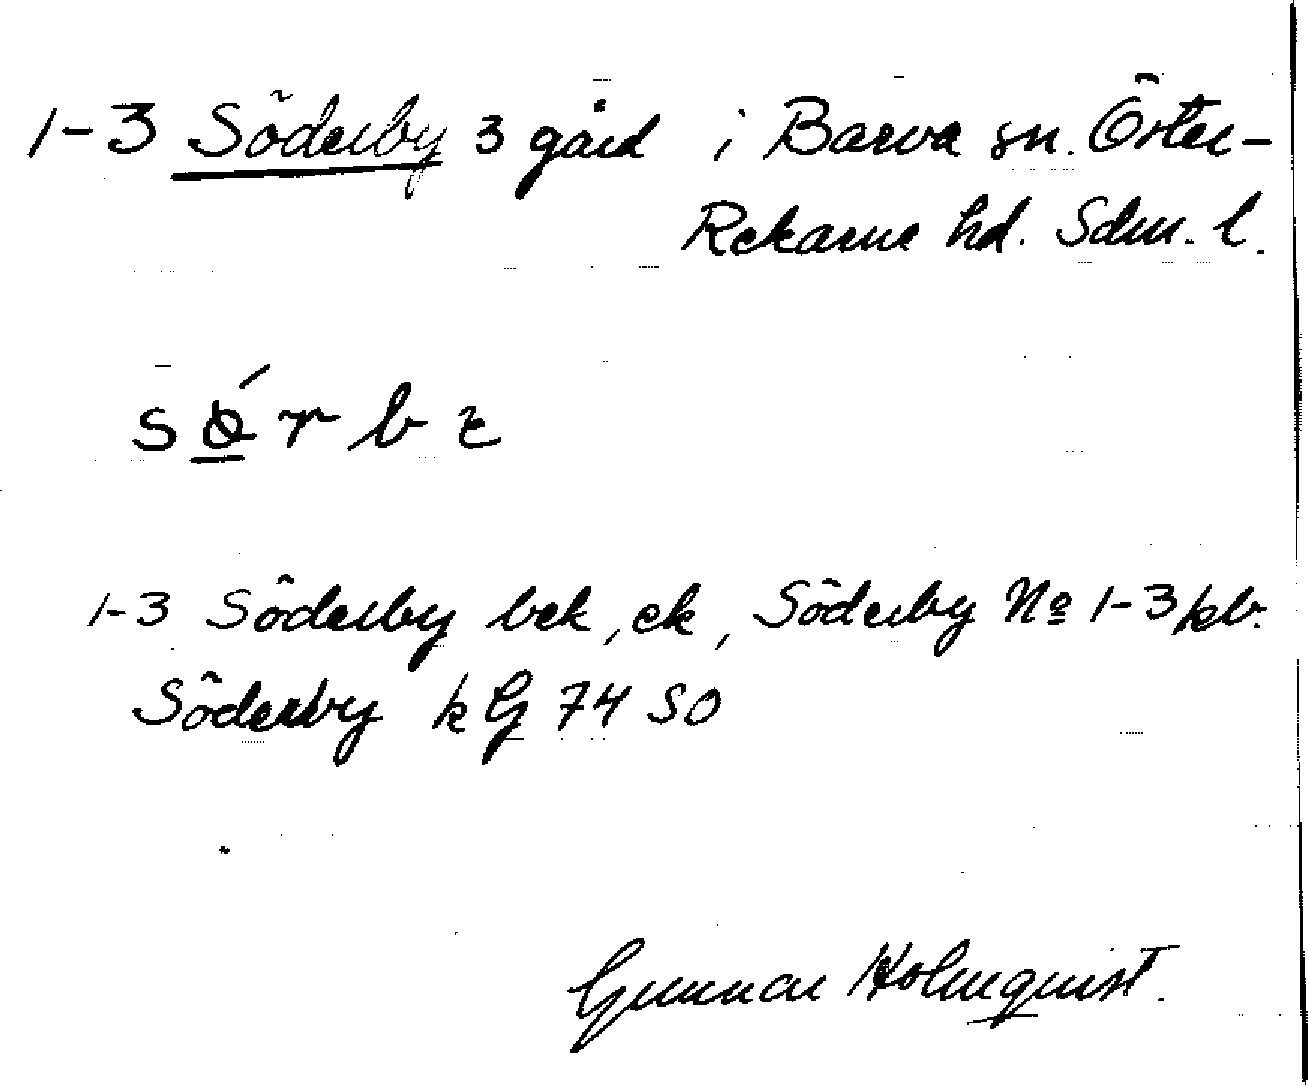 1-3 Söderby 3 gård i Barva sn. Öster-
Rekarne hd. Sdm. l.
1-3 Söderby bek, ek, Söderby № 1-3 kb.
Söderby kG 74 SO
Gunnar Holmquist.